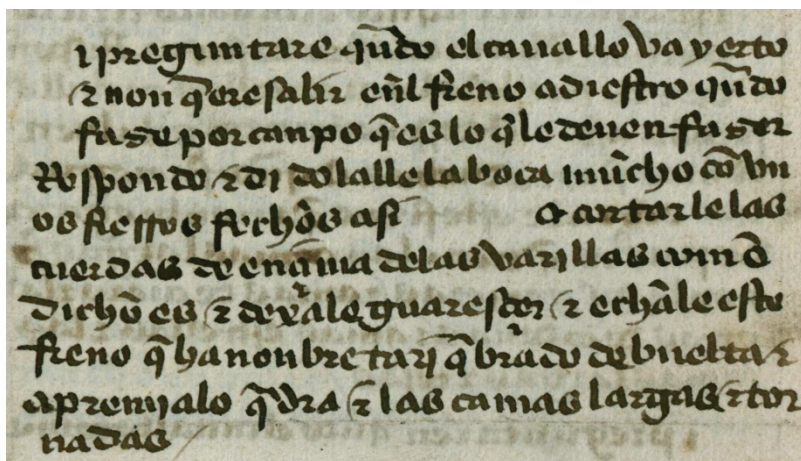 i preguntare qn̄do el cauallo va yerto
⁊ non q̄ere salir en̄l freno a diestro qn̄do
fase por canpo q̄ es lo q̄ le deuen faser
Respondo ⁊ di dolalle la boca mūcho cō vn
os fierros fechōs asi o cortar le las
cuerdas de ençima de las varillas com̄o
dichō es ⁊ dexale guaresçer ⁊ echāle esto
freno q̄ ha nonbre tarī q̄brado de buelta ⁊
apremjalo q̄dra ⁊ las camas largas ⁊ tor
nadas